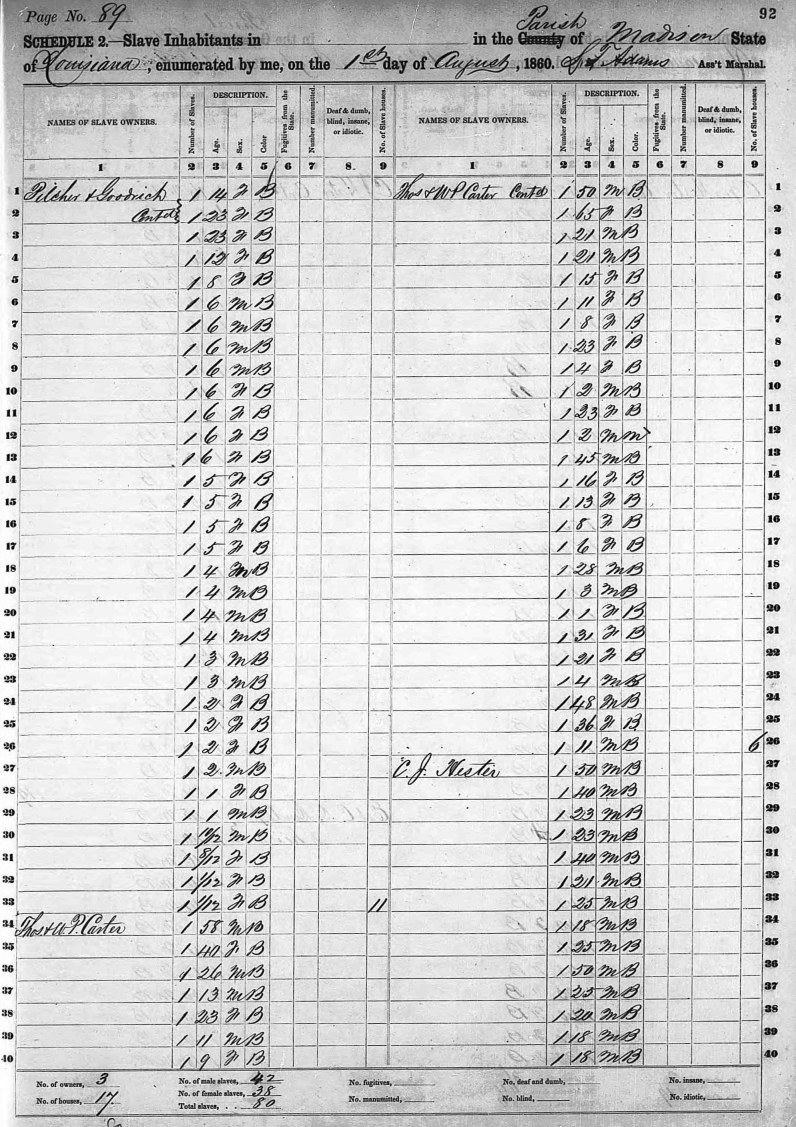 Page No. 89
92
SCHEDULE 2.—Slave Inhabitants in in the County Parish of Madison State
of Louisiana, enumerated by me, on the 1st day of August, 1860. Adams Ass't Marshal.
NAMES OF SLAVE OWNERS. Number of Slaves. DESCRIPTION. Age. Sex. Color. Fugitives from the State. Number manumitted. Deaf & dumb, blind, insane, or idiotic. No. of Slave houses. NAMES OF SLAVE OWNERS. Number of Slaves. DESCRIPTION. Age. Sex. Color. Fugitives from the State. Number manumitted. Deaf & dumb, blind, insane, or idiotic. No. of Slave houses.
1 2 3 4 5 6 7 8. 9 1 2 3 4 5 6 7 8 9
1 Pilcher & Goodrich 1 14 F B Thos & W P Carter Contd 1 50 M B 1
2 Contd 1 23 F B 1 65 F B 2
3 1 23 F B 1 21 M B 3
4 1 12 F B 1 21 M B 4
5 1 8 F B 1 15 F B 5
6 1 6 M B 1 11 F B 6
7 1 6 M B 1 8 F B 7
8 1 6 M B 1 23 F B 8
9 1 6 M B 1 4 F B 9
10 1 6 F B 1 2 M B 10
11 1 6 F B 1 23 F B 11
12 1 6 F B 1 2 M M 12
13 1 6 F B 1 45 M B 13
14 1 5 F B 1 16 F B 14
15 1 5 F B 1 13 F B 15
16 1 5 F B 1 8 F B 16
17 1 5 F B 1 6 F B 17
18 1 4 M B 1 28 M B 18
19 1 4 M B 1 3 M B 19
20 1 4 M B 1 1 F B 20
21 1 4 M B 1 31 F B 21
22 1 3 M B 1 21 F B 22
23 1 3 M B 1 4 M B 23
24 1 2 F B 1 48 M B 24
25 1 2 F B 1 36 F B 25
26 1 2 F B 1 11 M B 6 26
27 1 2 M B C. J. Hester 1 50 M B 27
28 1 1 F B 1 40 M B 28
29 1 1 M B 1 23 M B 29
30 1 M B 1 23 M B 30
31 1 8/12 F B 1 40 M B 31
32 1 1/12 F B 1 21 M B 32
33 1 1/12 F B 11 1 25 M B 33
34 Thos & W. P. Carter 1 58 M B 1 18 M B 34
35 1 40 F B 1 25 M B 35
36 1 26 M B 1 50 M B 36
37 1 13 M B 1 25 M B 37
38 1 23 F B 1 20 M B 38
39 1 11 M B 1 18 M B 39
40 1 9 F B 1 18 M B 40
No. of owners, 3 No. of male slaves, 42 No. fugitives, No. deaf and dumb, No. insane,
No. of houses, 17 No. of female slaves, 38 No. manumitted, No. blind, No. idiotic,
Total slaves, 80